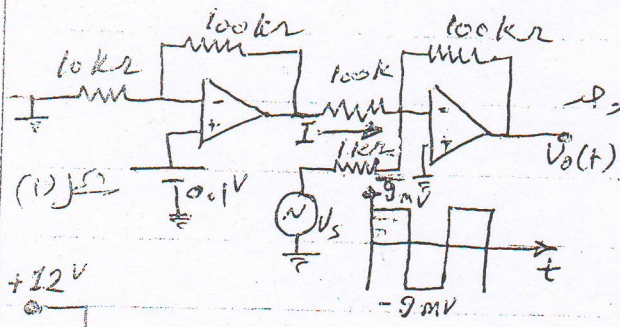 100kΩ
100kΩ
10kΩ
100k
-
+
-
+
I
1kΩ
V₀(t)
0.1V
Vs
+9mV
t
-9mV
+12V